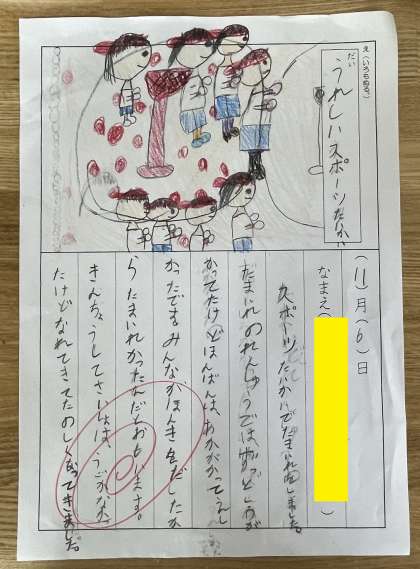 え(いろもぬる)
だい
うれしいスポーツたいかい
(11)月(6)日
なまえ( )
スポーツたいかいでたまいれをしました。
たまいれのれんしゅうでは、
かってたけどほんばんは、あかがかってうれし
かったです。みんながほんきをだしたか
らたまいれかったんだとおもいます。
きんちょうしてさいしょは、うごかなかっ
たけどなれてきてたのしくなってきました。